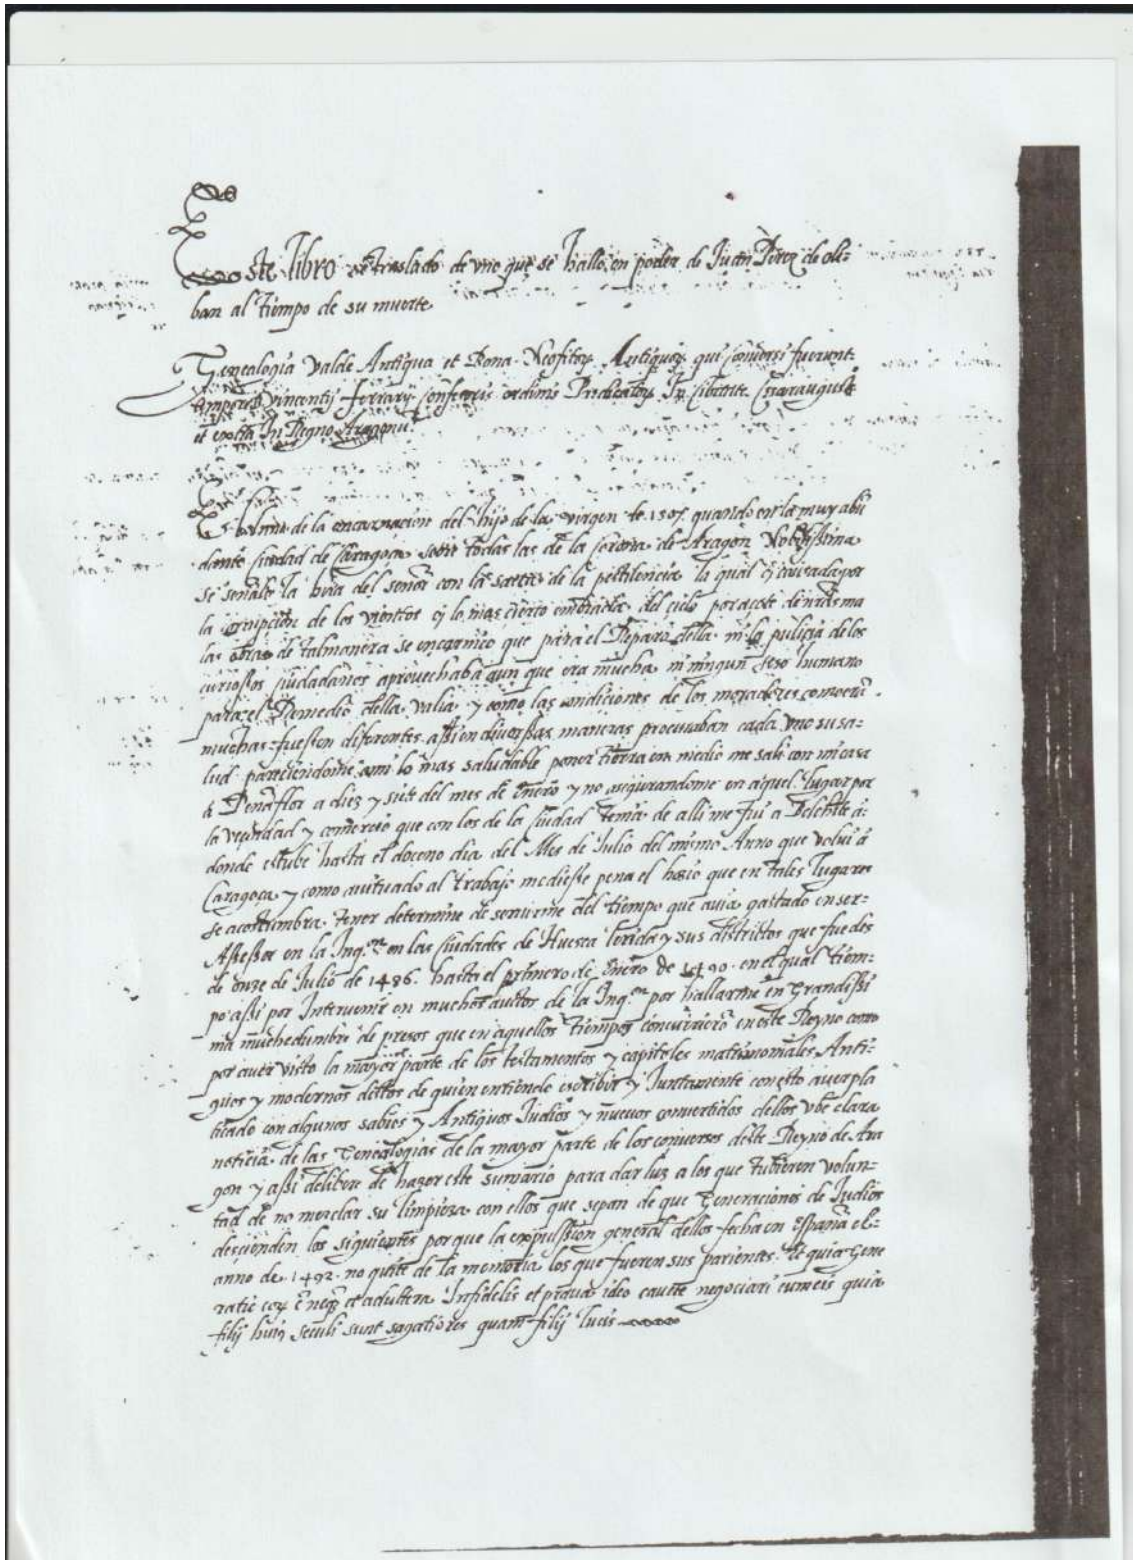 Este libro se traslado de uno que se hallo en poder de Juan Perez de oli-
ban al tiempo de su muerte
Genealogia valde Antiqua et Bona Neofitoꝝ Antiquoꝝ qui conversi fuerunt
tempore Vincentij ferrarij Confessoris ordinis Predicatoꝝ In Civitate Cesarauguste
et extra In Regno Aragonũ
En el anno de la encarnacion del hijo de la virgen de 1507 quando en la muy abũ
dante Ciudad de Caragoça sobre todas las de la Corona de Aragon Nobilissima
se señalo la hira del señor con las saetas de la pestilencia la qual ó causada por
la corrupcion de los vientos ó lo mas cierto embiada del cielo por açote de nrãs ma
las obras de tal manera se encarniço que para el Reparo della ni la pulicia de los
curiossos ciudadanos aprovechaba aun que era mucha ni ningun seso humano
para el Remedio della valia y como las condiciones de los moradores como erã
muchas fuessen diferentes assi en diverssas maneras procuraban cada uno su sa-
lud pareciendome ami lo mas saludable poner tierra en medio me sali con mi casa
a Peñaflor a diez y siete del mes de Enero y no asigurandome en aquel lugar por
la vezindad y comercio que con los de la ciudad tenia de alli me fui a Belchite a-
donde estube hasta el doceno dia del Mes de Julio del mismo Anno que volui á
Caragoça y como avituado al trabajo me diesse pena el hocio que en tales lugares
se acostumbra tener determine de servirme del tiempo que avia gastado en ser-
Assessor en la Inq.on en las ciudades de Huesca lerida y sus distrittos que fue des
de onze de Julio de 1486 hasta el primero de Enero de 1490 en el qual tiem-
po assi por Intervenir en muchos auctos de la Inq.on por hallarme en Grandissi
ma muchedumbre de presos que en aquellos tiempos concurrierõ en este Reyno como
por aver visto la mayor parte de los testamentos y capitoles matrimoniales Anti-
guos y modernos dellos de quien entiendo escribir y Juntamente con esto aver pla
ticado con algunos sabios y Antiguos Judios y nuevos convertidos dellos ube clara
noticia de las Genealogias de la mayor parte de los conversos deste Reyno de Ara
gon y assi delibere de hazer este sumario para dar luz a los que tubieren volun-
tad de no mezclar su limpieza con ellos que sepan de que Generaciones de Judios
descienden los siguientes por que la expulssion general dellos fecha en Esspaña el-
anno de 1492 no quite de la memoria los que fueron sus parientes Et quia Gene
ratio eoꝝ ẽ neqꝫ et adultera Infidelis et praua ideo caute negociari cum eis quia
filij huiꝰ seculi sunt sagatiores quam filij lucis